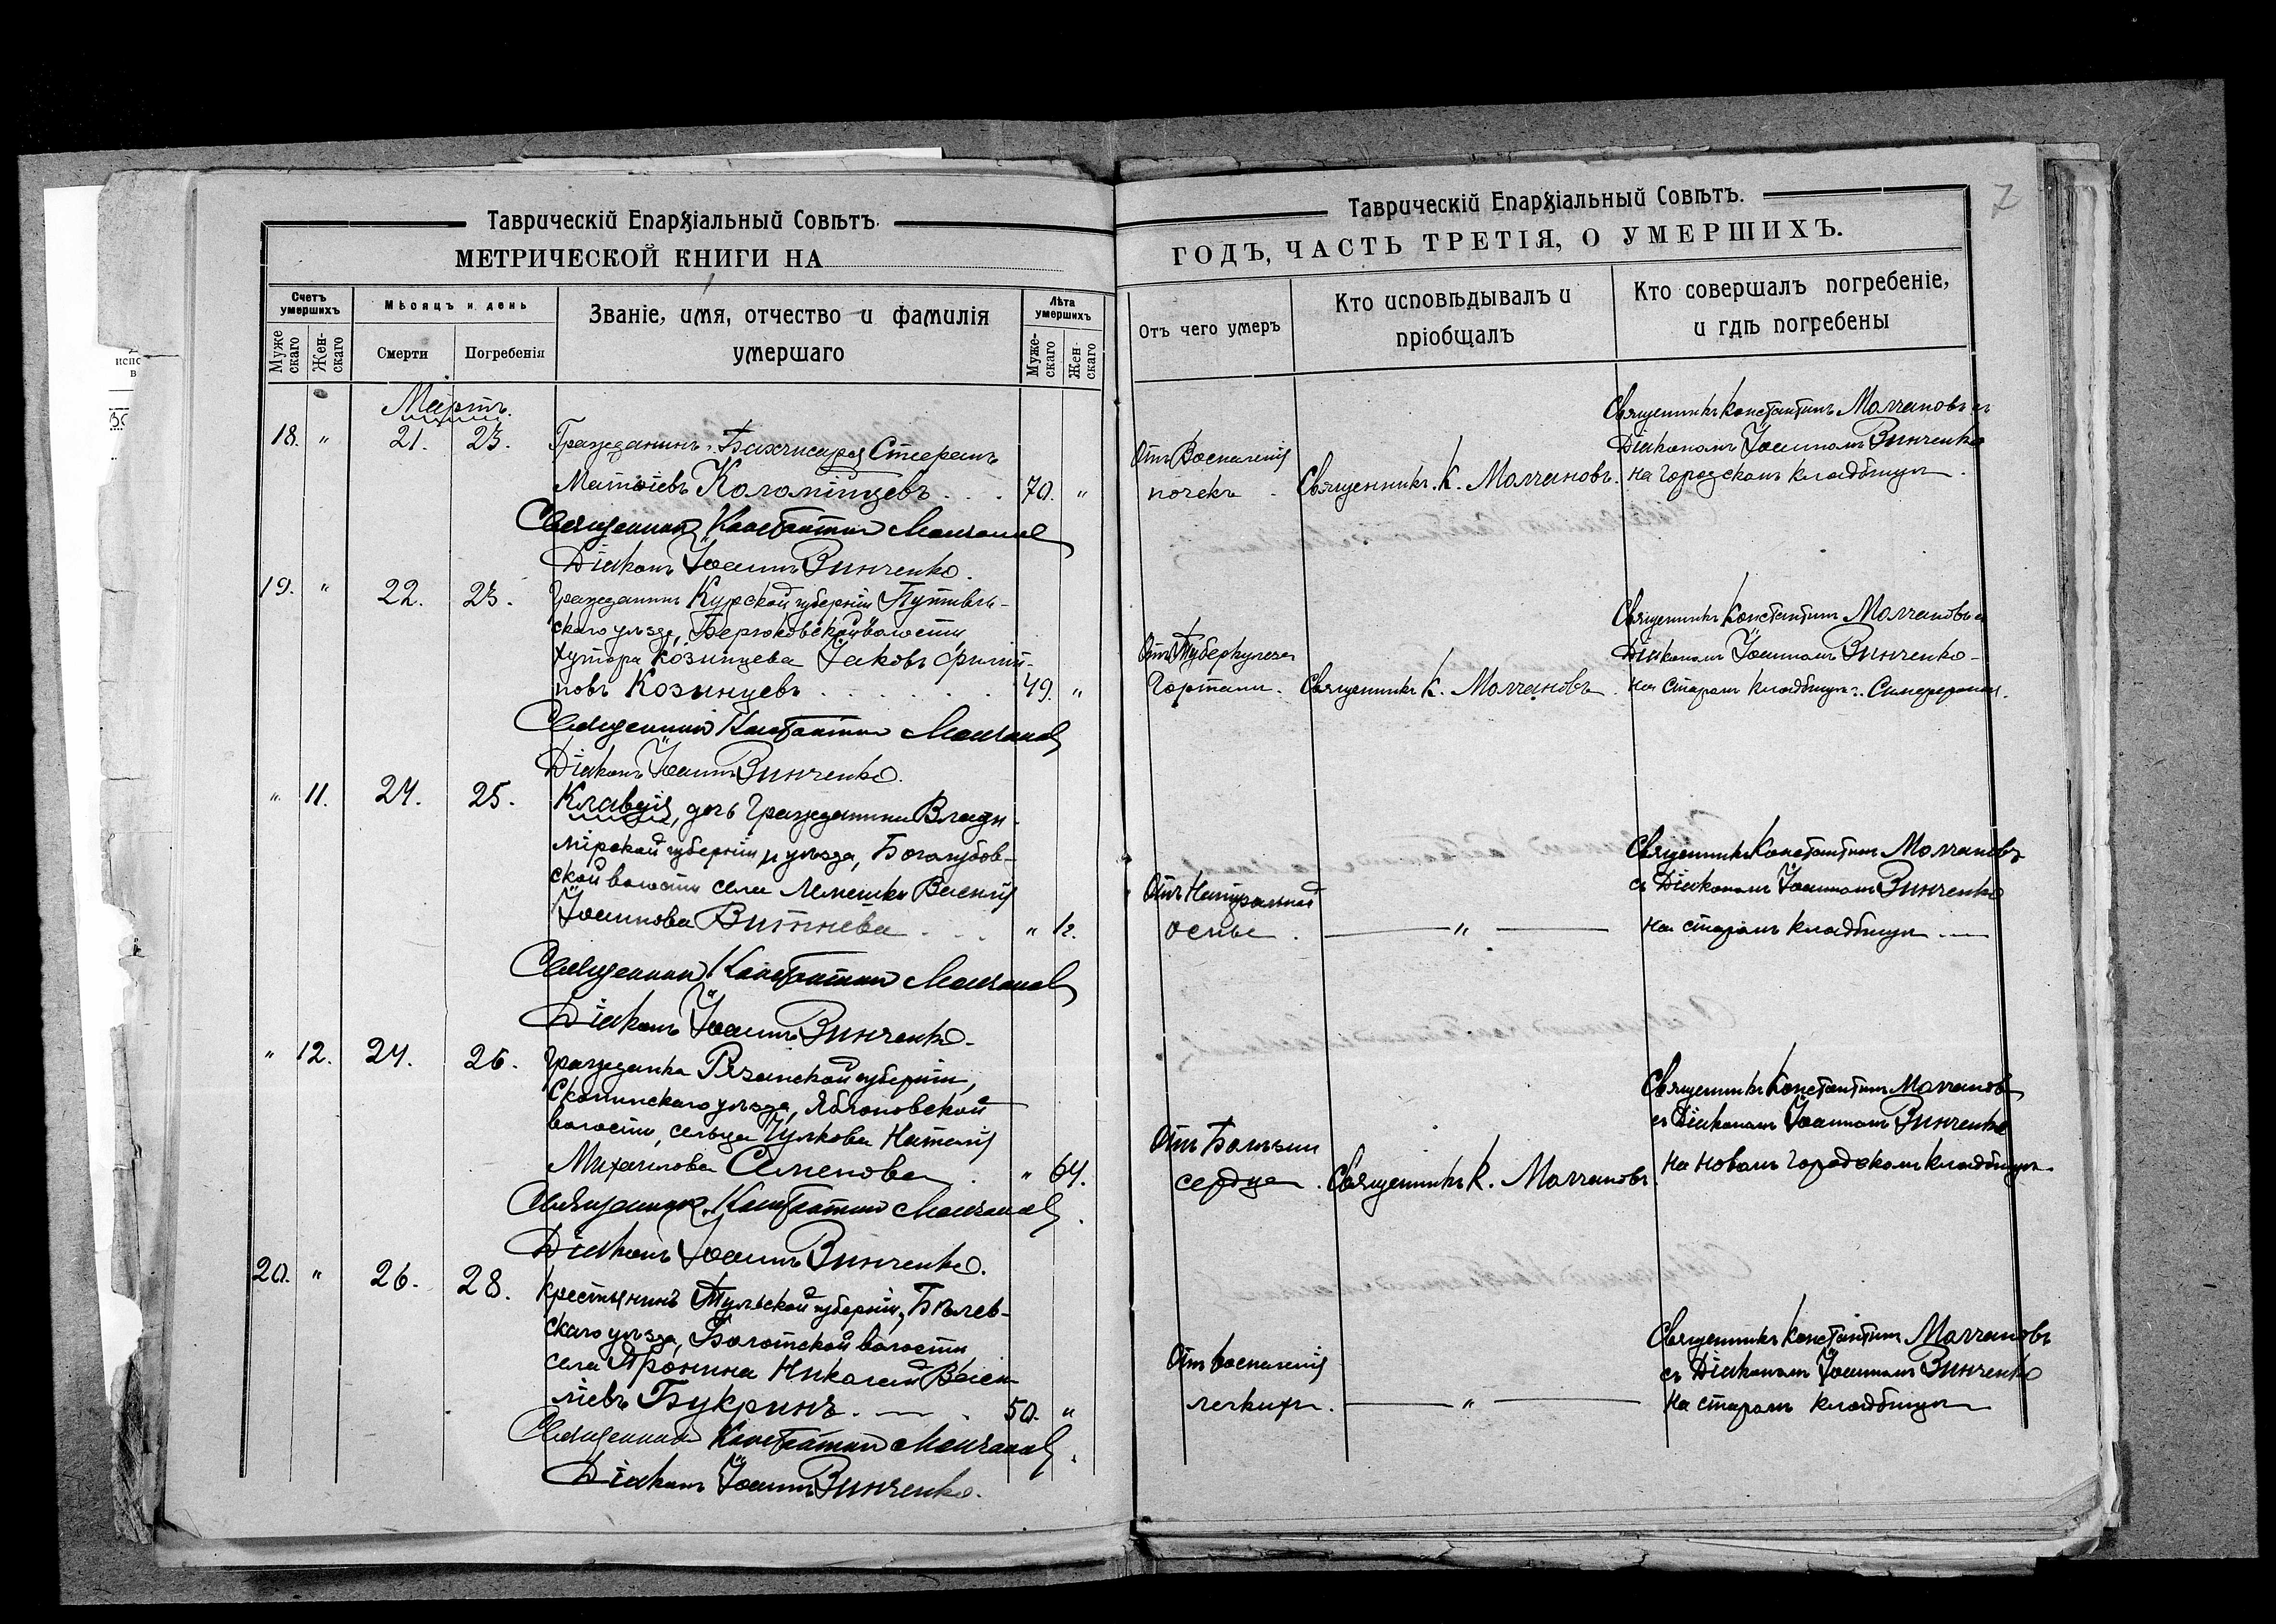 Таврическій Епархіальный Совѣтъ.
МЕТРИЧЕСКОЙ КНИГИ НА
Счетъ умершихъ
Мѣсяцъ и день
Званіе, имя, отчество и фамилія умершаго
Лѣта умершихъ
Мужескаго
Женскаго
Смерти
Погребенія
Мужескаго
Женскаго
Мартъ.
18. " 21. 23. Гражданинъ г. Бахчисарая Стефанъ
Матѳіевъ Коломійцевъ . . . 70. "
Священникъ Константинъ Молчановъ
Діаконъ Іоаннъ Винченко.
19. " 22. 23. Гражданинъ Курской губерніи Путивль-
скаго уѣзда, Берюковской волости
хутора Козинцева Іаковъ Филип-
повъ Козинцевъ . . . . . . . 49. "
Священникъ Константинъ Молчановъ
Діаконъ Іоаннъ Винченко.
" 11. 24. 25. Клавдія, дочь гражданина Влади-
мірской губерніи и уѣзда, Боголюбов-
ской волости села Лемешки Василія
Іоаннова Витнева . . . " 12.
Священникъ Константинъ Молчановъ
Діаконъ Іоаннъ Винченко.
" 12. 24. 26. Гражданка Рязанской губерніи,
Скопинскаго уѣзда, Яблоновской
волости, сельца Чулкова Наталія
Михаилова Семенова . " 64.
Священникъ Константинъ Молчановъ
Діаконъ Іоаннъ Винченко.
20. " 26. 28. Крестьянинъ Тульской губерніи, Бѣлев-
скаго уѣзда, Болотской волости
села Пронина Николай Васи-
ліевъ Букринъ. — . 50. "
Священникъ Константинъ Молчановъ
Діаконъ Іоаннъ Винченко.
7
Таврическій Епархіальный Совѣтъ.
ГОДЪ, ЧАСТЬ ТРЕТІЯ, О УМЕРШИХЪ.
Отъ чего умеръ
Кто исповѣдывалъ и пріобщалъ
Кто совершалъ погребеніе, и гдѣ погребены
Отъ Воспаленія
почекъ .
Священникъ К. Молчановъ.
Священникъ Константинъ Молчановъ съ
Діакономъ Іоанномъ Винченко
на Городскомъ кладбищѣ.
Отъ Туберкулеза
Гортани.
Священникъ К. Молчановъ.
Священникъ Константинъ Молчановъ съ
Діакономъ Іоанномъ Винченко
на старомъ кладбищѣ г. Симферополя.
Отъ Натуральной
оспы .
— " —
Священникъ Константинъ Молчановъ
съ Діакономъ Іоанномъ Винченко
на старомъ кладбищѣ. —
Отъ Болѣзни
сердца .
Священникъ К. Молчановъ.
Священникъ Константинъ Молчановъ
съ Діакономъ Іоанномъ Винченко
на новомъ Городскомъ кладбищѣ.
Отъ воспаленія
легкихъ.
— " —
Священникъ Константинъ Молчановъ
съ Діакономъ Іоанномъ Винченко
на старомъ кладбищѣ